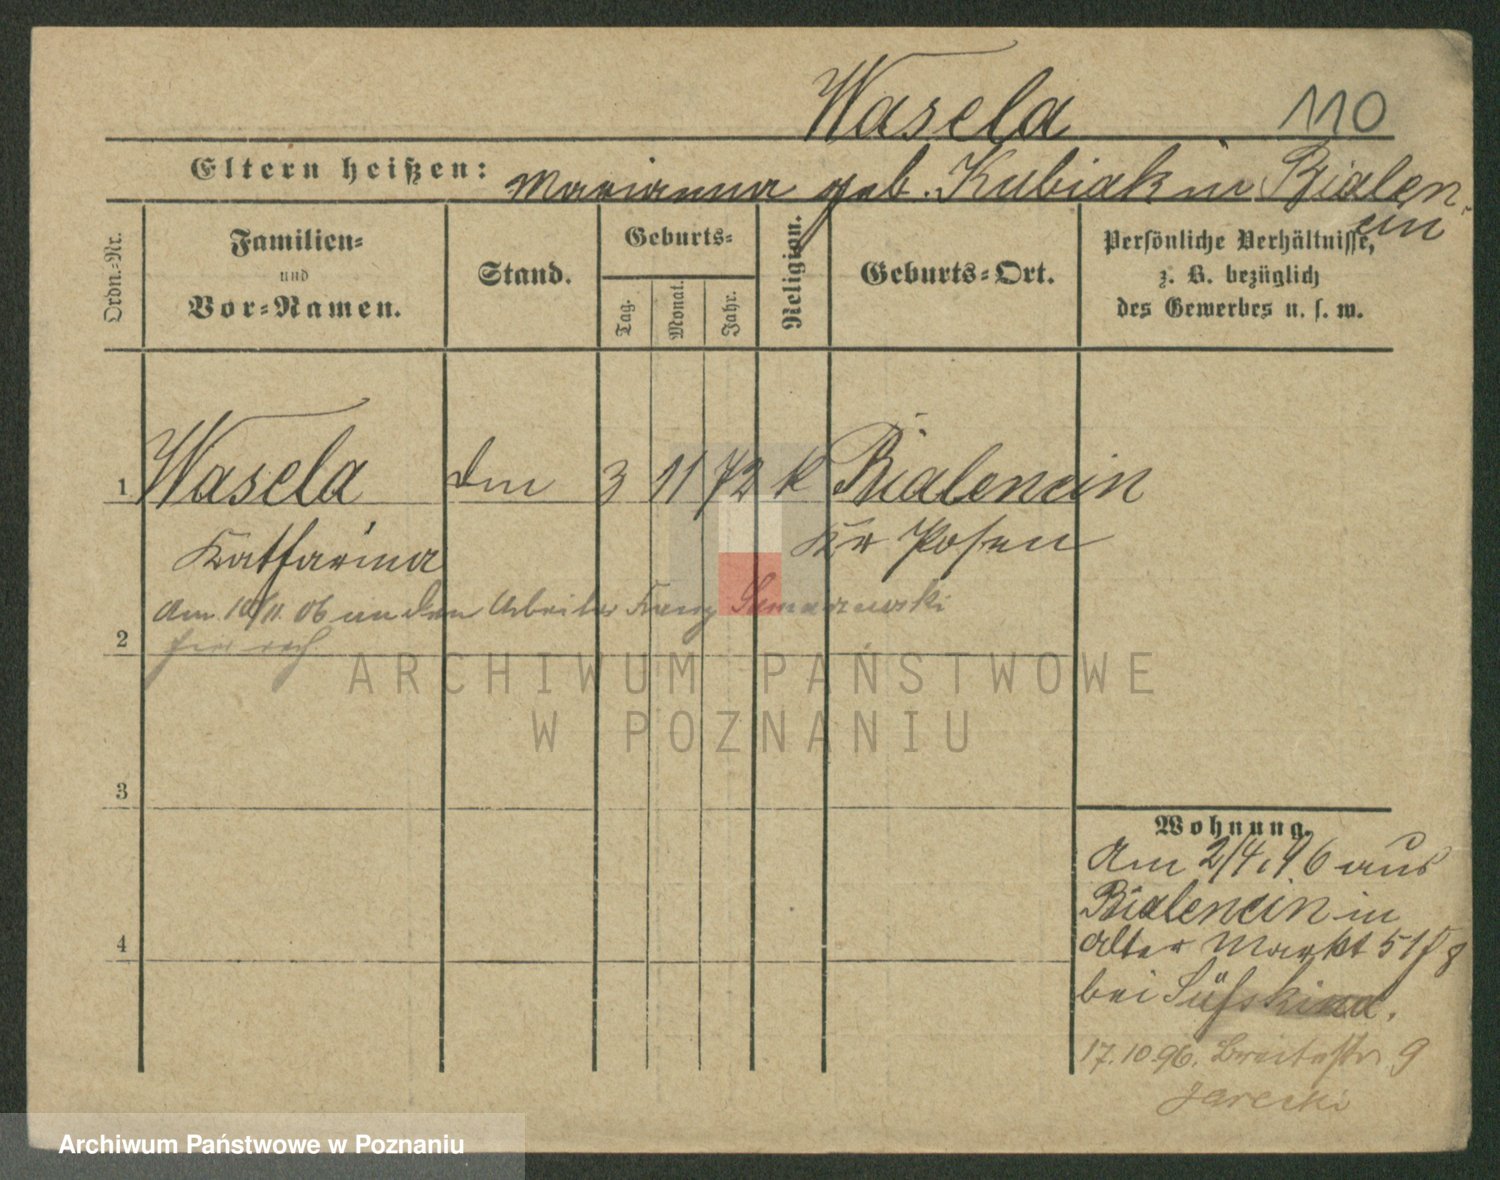 Wasela 110
Eltern heißen: Marianna geb. Kubiak in Bialen-
cin
Ordn.-Nr.
Familien-
und
Vor-Namen.
Stand.
Geburts-
Tag.
Monat.
Jahr.
Religion.
Geburts-Ort.
Persönliche Verhältnisse,
z. B. bezüglich
des Gewerbes u. s. w.
1 Wasela 3 11 72 k Bialencin
Katharina Kr Posen
Am 10/11. 06 an den Arbeiter Franz
2
ARCHIWUM PAŃSTWOWE
W POZNANIU
3
4
Wohnung.
Am 2/4. 96 aus
Bialencin in
Alter Markt 51
bei
17.10.96. Breitestr. 9
Jarecki
Archiwum Państwowe w Poznaniu